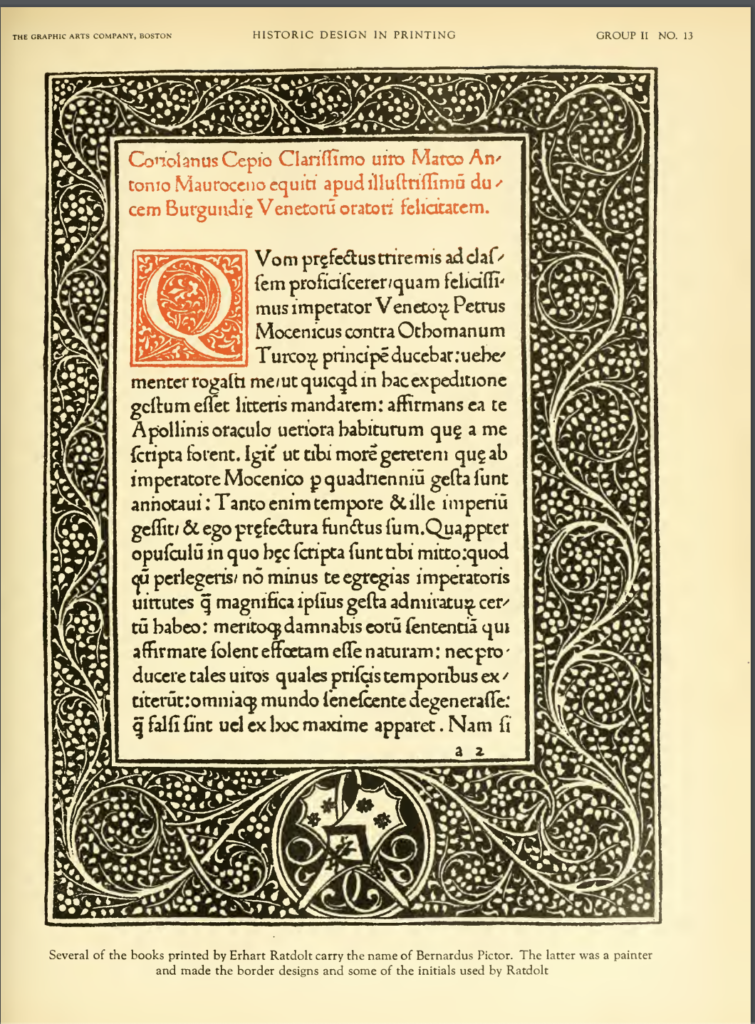 THE GRAPHIC ARTS COMPANY, BOSTON
HISTORIC DESIGN IN PRINTING
GROUP II NO. 13
Coriolanus Cepio Clariſſimo uiro Marco An⸗
tonio Mauroceno equiti apud illuſtriſſimū du⸗
cem Burgundię Venetorū oratori felicitatem.
QVom pręfectus triremis ad claſ⸗
ſem proficiſcerer/quam feliciſſi⸗
mus imperator Venetoꝝ Petrus
Mocenicus contra Othomanum
Turcoꝝ principē ducebat:uehe⸗
menter rogaſti me/ut quicqd in hac expeditione
geſtum eſſet litteris mandarem: affirmans ea te
Apollinis oraculo ueriora habiturum quę a me
ſcripta forent. Igit̄ ut tibi morē gererem quę ab
imperatore Mocenico ꝑ quadrienniū geſta ſunt
annotaui: Tanto enim tempore & ille imperiū
geſſit/ & ego pręfectura functus ſum.Quaꝓpter
opuſculū in quo hęc ſcripta ſunt tibi mitto:quod
qū perlegeris/ nō minus te egregias imperatoris
uirtutes q̄ magnifica ipſius geſta admiratuꝝ cer⸗
tū habeo: meritoqꝫ damnabis eorū ſententiā qui
affirmare ſolent effœtam eſſe naturam: nec pro⸗
ducere tales uiros quales priſcis temporibus ex⸗
titerūt:omniaqꝫ mundo ſeneſcente degeneraſſe:
q̄ falſi ſint uel ex hoc maxime apparet. Nam ſi
a 2
Several of the books printed by Erhart Ratdolt carry the name of Bernardus Pictor. The latter was a painter
and made the border designs and some of the initials used by Ratdolt